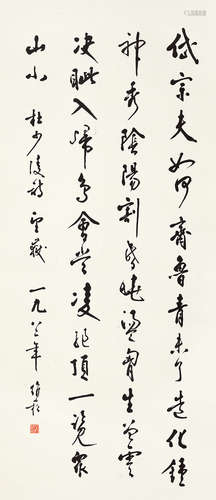 岱宗夫如何齊魯青未了造化鍾
神秀陰陽割昏曉盪胸生曾雲
決眦入歸鳥會當凌絕頂一覽眾
山小 杜少陵詩望嶽 一九八三年